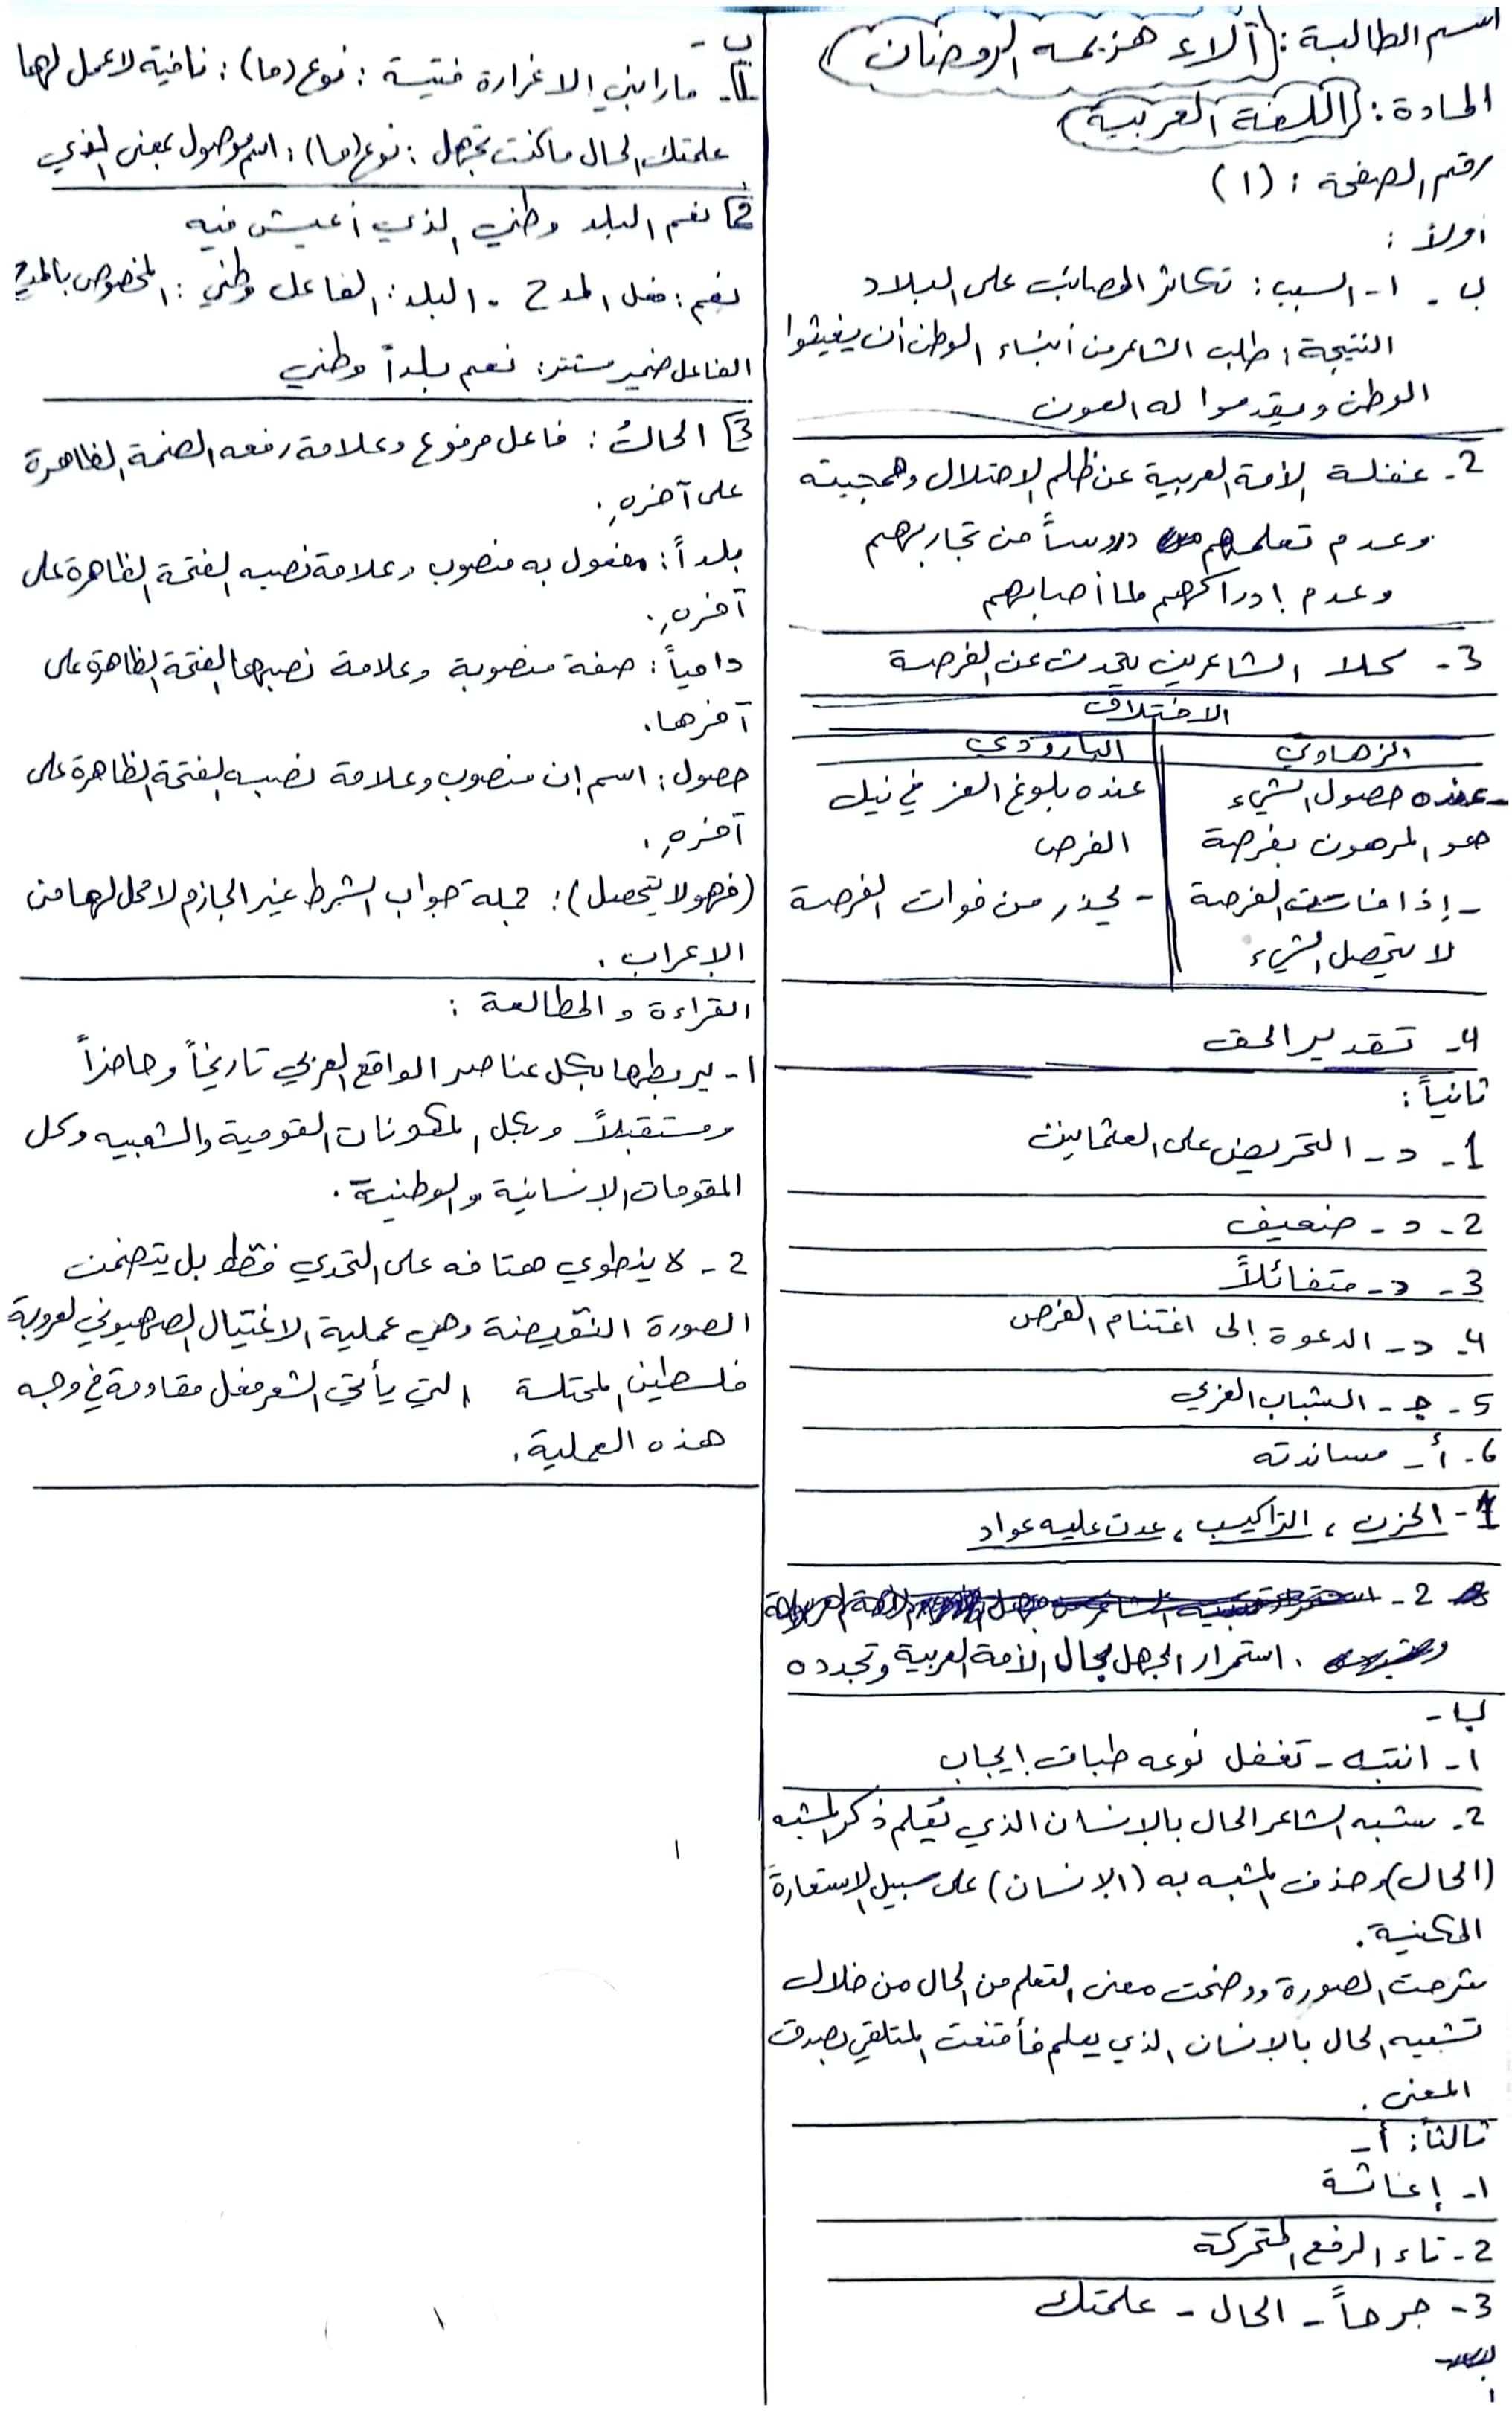 اسم الطالبة: (آلاء هزيمه الرمضان)
المادة: (اللغة العربية)
رقم الصفحة: (١)
أولاً:
ب - ١- السبب: تكاثر المصائب على البلاد
النتيجة: طلب الشاعر من أبناء الوطن أن يغيثوا
الوطن ويقدموا له العون
2- غفلة الأمة العربية عن ظلم الاحتلال وهمجيته
وعدم تعلمهم دروساً من تجاربهم
وعدم إدراكهم لما أصابهم
3- كلا الشاعرين يتحدث عن الفرصة
الاختلاف
الزهاوي
- عنده حصول الشيء
هو المرهون بفرصة
- إذا فاتت الفرصة
لا يتحصل الشيء
البارودي
عنده بلوغ العز في نيل
الفرص
- يحذر من فوات الفرصة
4- تقدير الحق
ثانياً:
1- د- التحريض على العثمانين
2- د- ضعيف
3- د- متفائلاً
4- د- الدعوة إلى اغتنام الفرص
5- ج- الشباب العربي
6- أ- مساندته
1- الحزن، التراكيب، عدت عليه عواد
2-
. استمرار الجهل بحال الأمة العربية وتجدده
ب-
١- انتبه - تغفل نوعه طباق إيجاب
2- شبه الشاعر الحال بالإنسان الذي يُعلم ذكر المشبه
(الحال) وحذف المشبه به (الإنسان) على سبيل الاستعارة
المكنية.
شرحت الصورة ووضحت معنى التعلم من الحال من خلال
تشبيه الحال بالإنسان الذي يعلم فأقنعت المتلقي بصدق
المعنى.
ثالثاً: أ-
١- إغاثة
2- تاء الرفع المتحركة
3- جرحاً - الحال - علمتك
ب-
1- ما رابني إلا غرارة فتية: نوع (ما): نافية لا عمل لها
علمتك الحال ما كنت تجهل: نوع (ما): اسم موصول بمعنى الذي
2 نعم البلد وطني الذي أعيش فيه
نعم: فعل المدح - البلد: الفاعل وطني: المخصوص بالمدح
الفاعل ضمير مستتر: نعم بلداً وطني
3 الحالُ: فاعل مرفوع وعلامة رفعه الضمة الظاهرة
على آخره.
بلداً: مفعول به منصوب وعلامة نصبه الفتحة الظاهرة على
آخره.
دامياً: صفة منصوبة وعلامة نصبها الفتحة الظاهرة على
آخرها.
حصول: اسم إن منصوب وعلامة نصبه الفتحة الظاهرة على
آخره.
(فهو لا يتحصل): جملة جواب الشرط غير الجازم لا محل لها من
الإعراب.
القراءة والمطالعة:
١- يربطها بكل عناصر الواقع العربي تاريخاً وحاضراً
ومستقبلاً وبكل المكونات القومية والشعبيه وكل
المقومات الإنسانية والوطنية.
2- لا ينطوي هتافه على التحدي فقط بل يتضمن
الصورة النقيضة وهي عملية الاغتيال الصهيوني لعروبة
فلسطين المحتلة التي يأتي الشعر فعل مقاومة في وجه
هذه العملية.